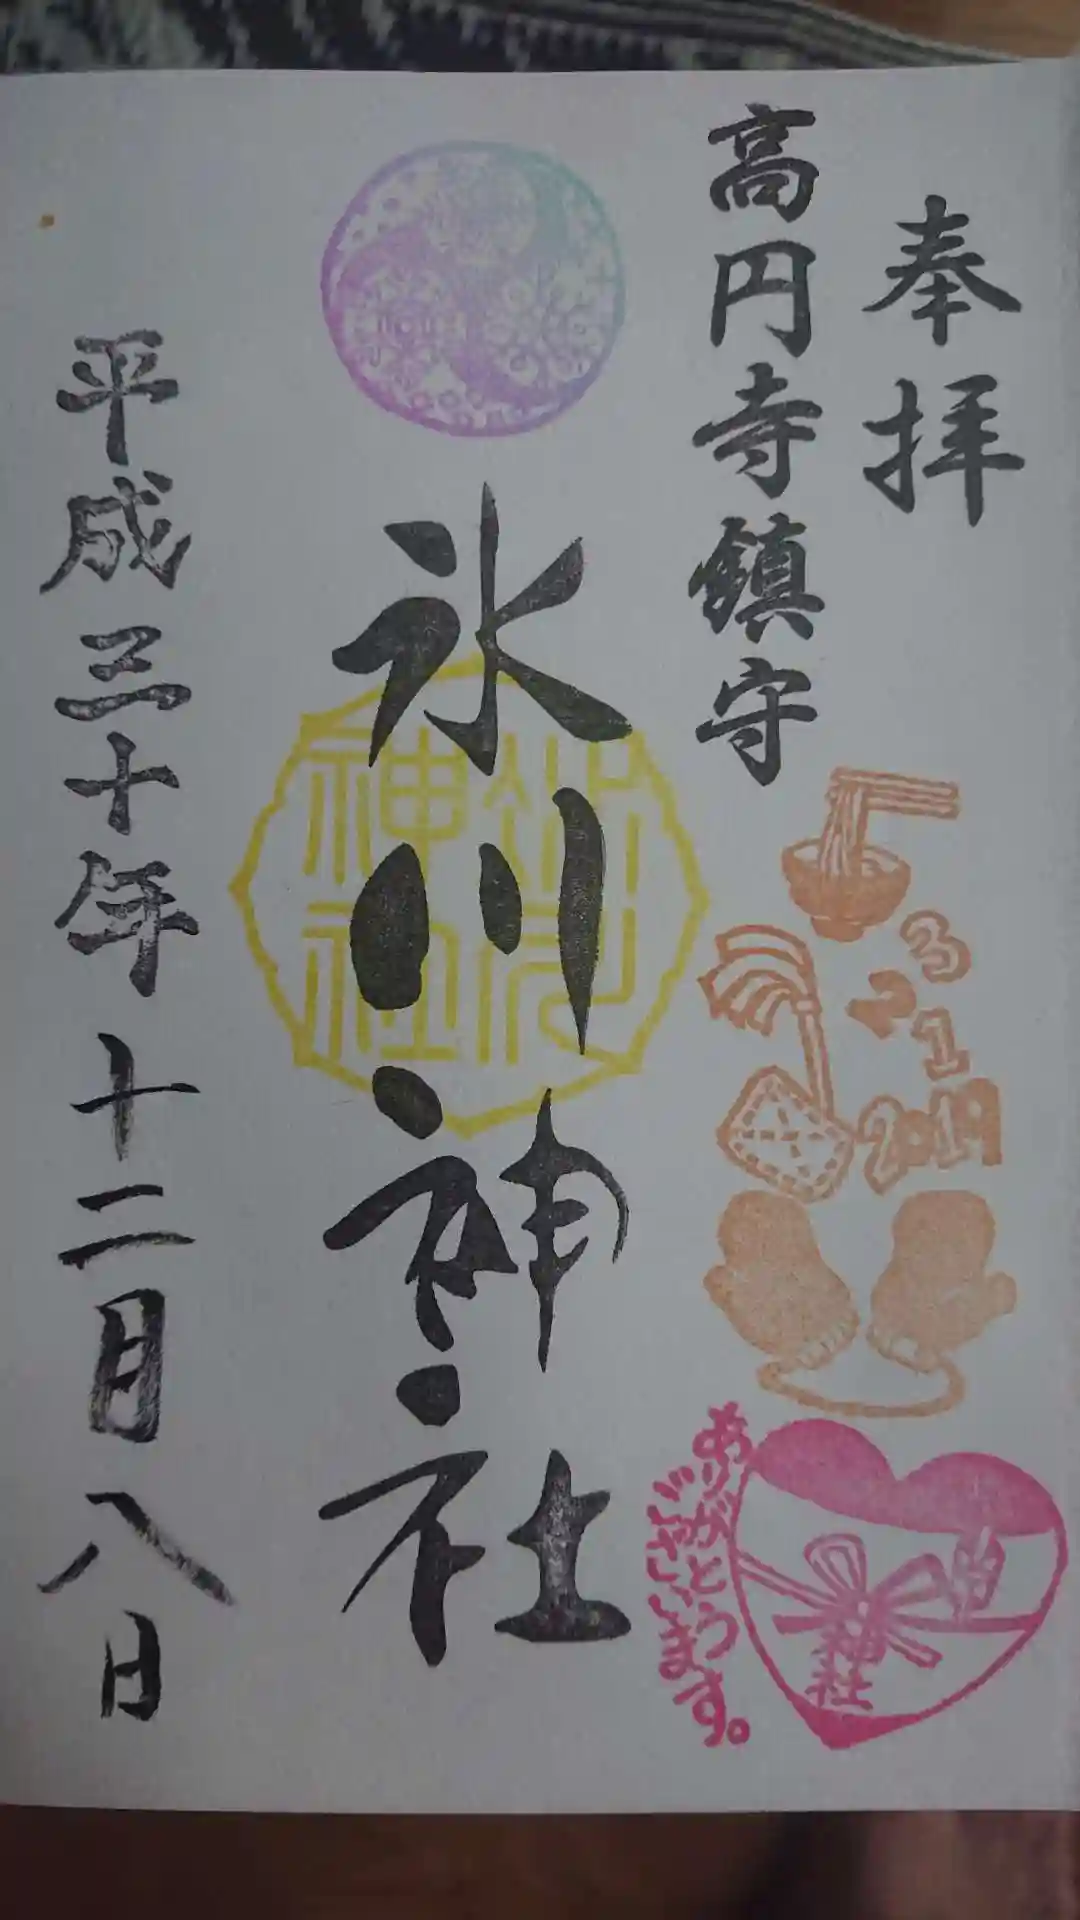 奉拝
高円寺鎮守
3
1
2019
ありがとう
ございます。
神社
氷川神社
氷川
神社
平成三十年十二月八日